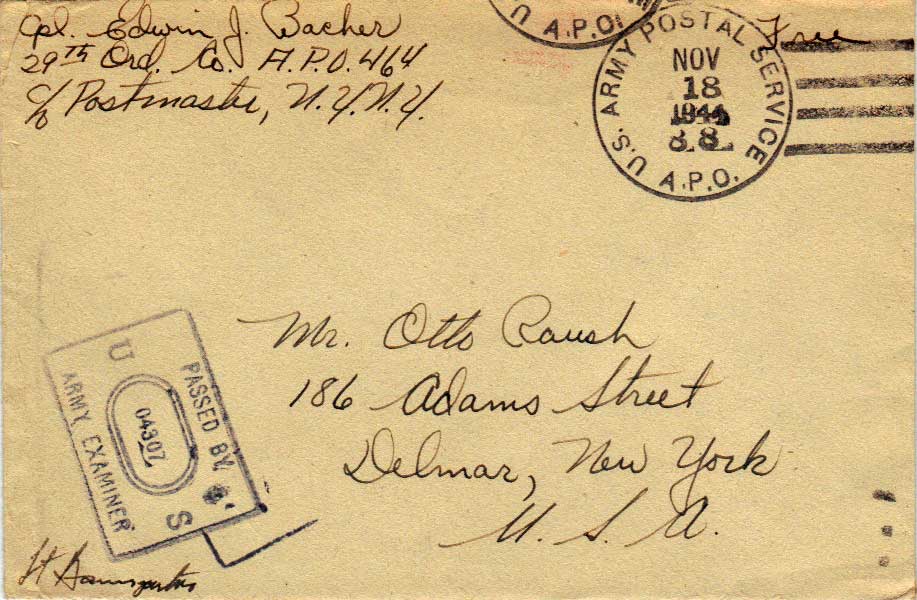 Cpl. Edwin J. Bacher
29TH Ord. Co. A.P.O. 464
c/o Postmaster, N.Y.N.Y.
Free
U A.P.O.
U.S. ARMY POSTAL SERVICE
NOV
18
1944
A.P.O.
Mr. Otto Raush
186 Adams Street
Delmar, New York
U. S. A.
PASSED BY
U S
04307
ARMY EXAMINER
Lt